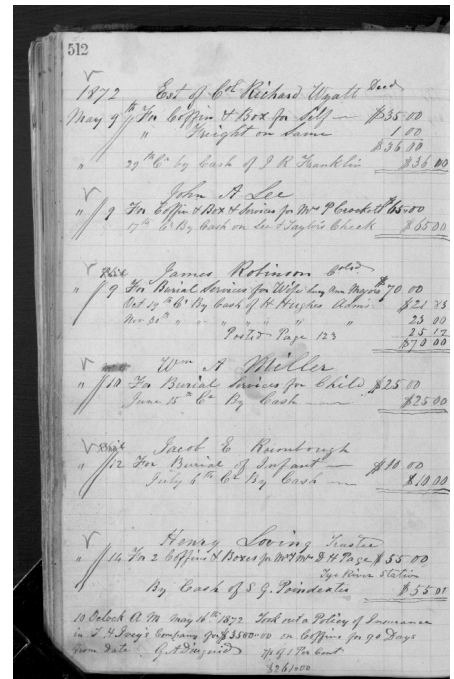 512
1872 Est of Col Richard Wyatt Decd
May 9th For Coffin & Box for Self — $35.00
" Freight on Same 1 00
$36 00
" 29th Cr by Cash of J R Franklin $36 00
John A Lee
" 9 For Coffin & Box & Services for Mrs P Crockett $65.00
17th Cr By Cash on Lee & Taylors Check $65 00
James Robinson Cold
" 9 For Burial Services for Wife Ann $70 00
Oct 19th Cr By Cash of H Hughes Admr $21 83
Nov 30th " " " " " " 23 00
Posted Page 123 25 17
$70 00
Wm A Miller
" 10 For Burial Services for Child $25 00
June 15th Cr By Cash — $25 00
Jacob E Rumbough
" 12 For Burial of Infant — $10 00
July 6th Cr By Cash — $10 00
Henry Loving Trustee
" 14 For 2 Coffins & Boxes for Mr & Mrs D H Page $55 00
Tye River Station
By Cash of S G Poindexter $55 00
10 Oclock A.M. May 16th 1872 Took out a Policy of Insurance
in T. H Ivey's Company for $3500.00 on Coffins for 90 Days
from Date G. A Diuguid of 1 Per Cent
$261.00